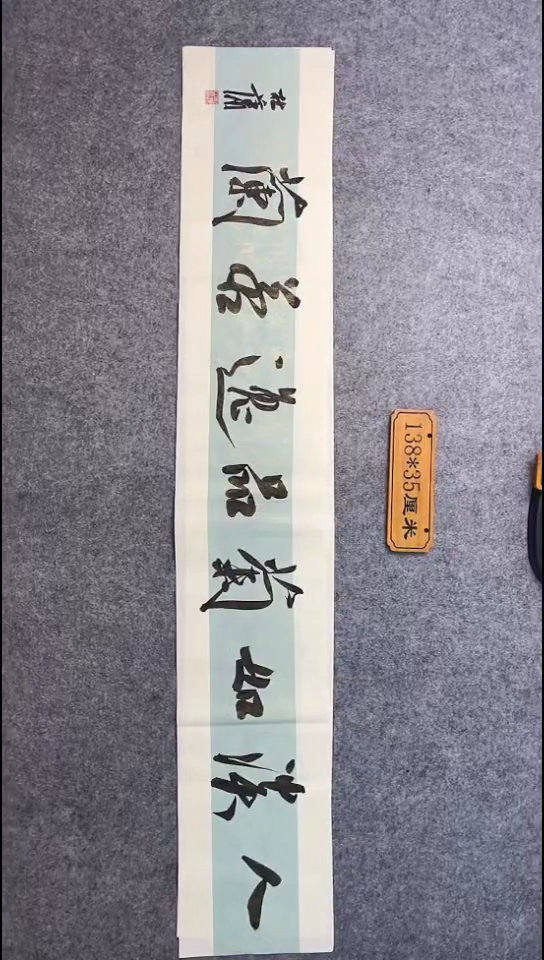 人淡如菊品逸若蘭
138*35厘米